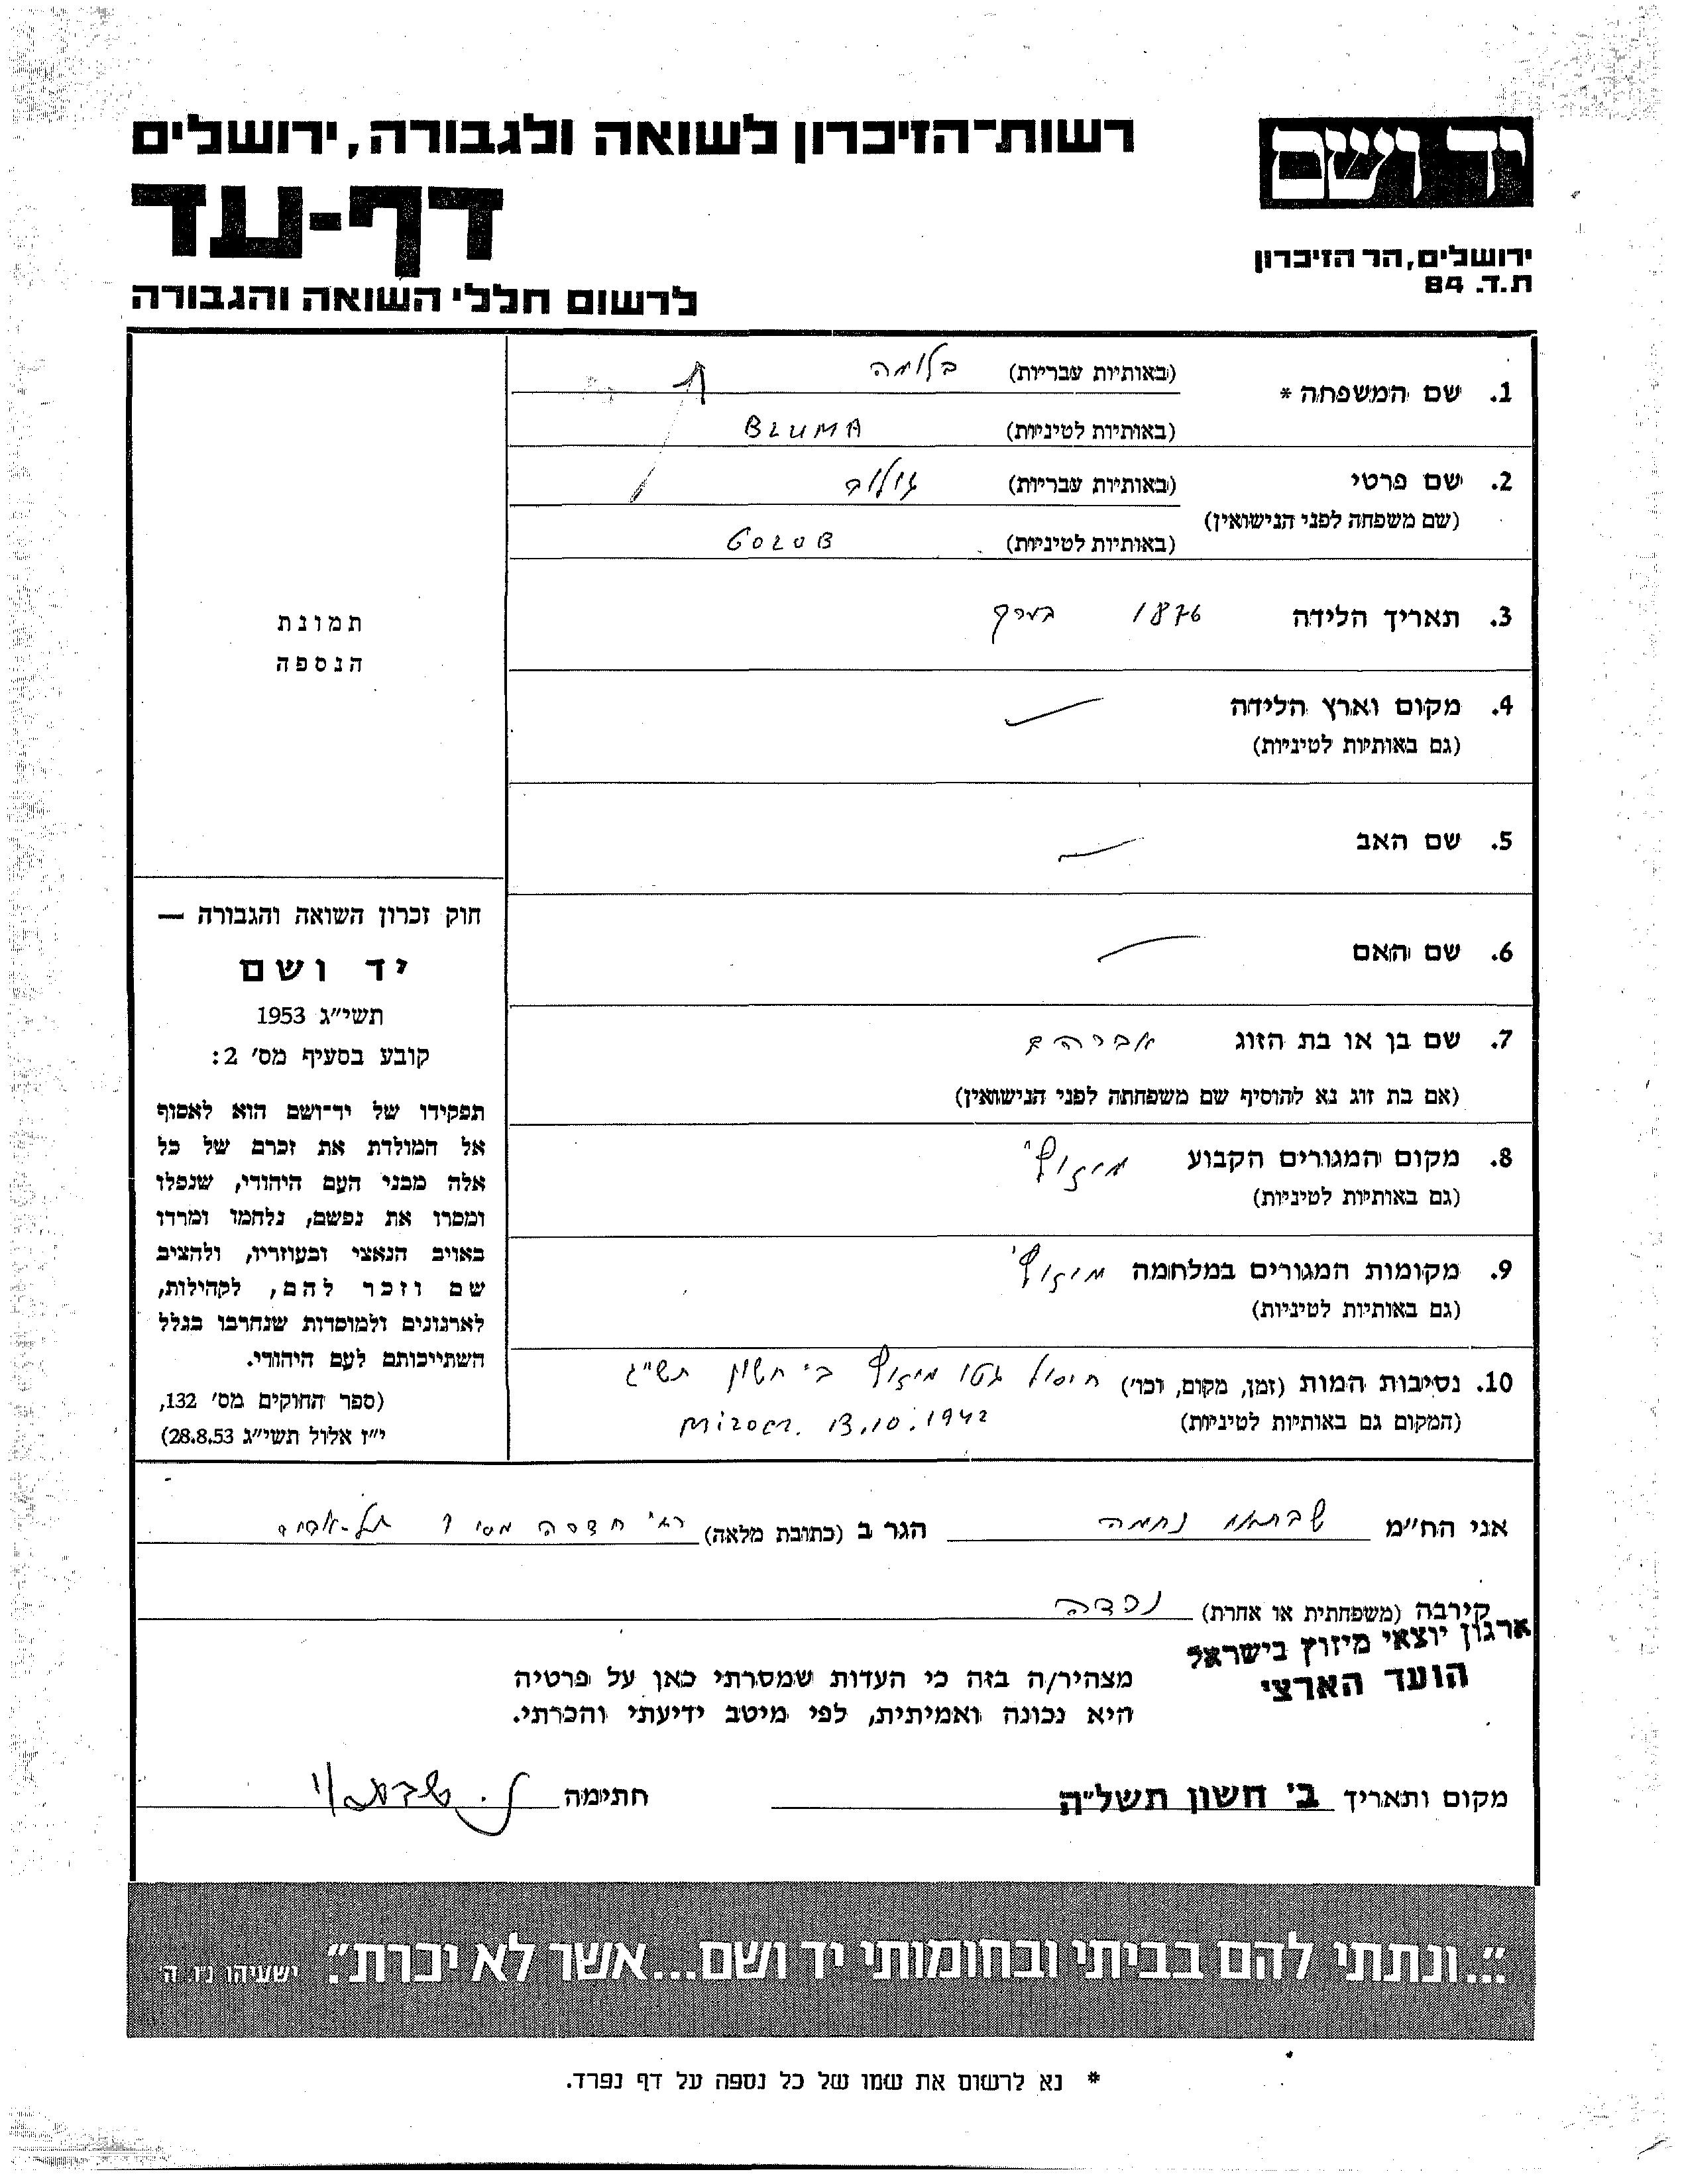 רשות־הזיכרון לשואה ולגבורה, ירושלים
יד ושם
דף-עד
ירושלים, הר הזיכרון
ת.ד. 84
לרשום חללי השואה והגבורה
1. שם המשפחה * (באותיות עבריות) בלומה
(באותיות לטיניות) BLUMA
2. שם פרטי (באותיות עבריות) גולוב
(שם משפחה לפני הנישואין)
(באותיות לטיניות) GOLUB
3. תאריך הלידה 1876 בערך
תמונת
הנספה
4. מקום וארץ הלידה
(גם באותיות לטיניות)
5. שם האב
6. שם האם
7. שם בן או בת הזוג אברהם
(אם בת זוג נא להוסיף שם משפחתה לפני הנישואין)
8. מקום המגורים הקבוע מיזוץ'
(גם באותיות לטיניות)
9. מקומות המגורים במלחמה מיזוץ'
(גם באותיות לטיניות)
10. נסיבות המות (זמן, מקום, וכו') חיסול גטו מיזוץ ב' חשון תש"ג
(המקום גם באותיות לטיניות) 13.10.1942
חוק זכרון השואה והגבורה —
יד ושם
תשי"ג 1953
קובע בסעיף מס' 2:
תפקידו של יד־ושם הוא לאסוף
אל המולדת את זכרם של כל
אלה מבני העם היהודי, שנפלו
ומסרו את נפשם, נלחמו ומרדו
באויב הנאצי ובעוזריו, ולהציב
שם וזכר להם, לקהילות,
לארגונים ולמוסדות שנחרבו בגלל
השתייכותם לעם היהודי.
(ספר החוקים מס' 132,
י"ז אלול תשי"ג 28.8.53)
אני הח"מ שבתאי נחמה הגר ב (כתובת מלאה) רח' הדסה מס' תל-אביב
קירבה (משפחתית או אחרת) נכדה
ארגון יוצאי מיזוץ בישראל
הועד הארצי
מצהיר/ה בזה כי העדות שמסרתי כאן על פרטיה
היא נכונה ואמיתית, לפי מיטב ידיעתי והכרתי.
מקום ותאריך ב' חשון תשל"ה חתימה נ. שבתאי
"...ונתתי להם בביתי ובחומותי יד ושם...אשר לא יכרת". ישעיהו נ"ו ה'
* נא לרשום את שמו של כל נספה על דף נפרד.